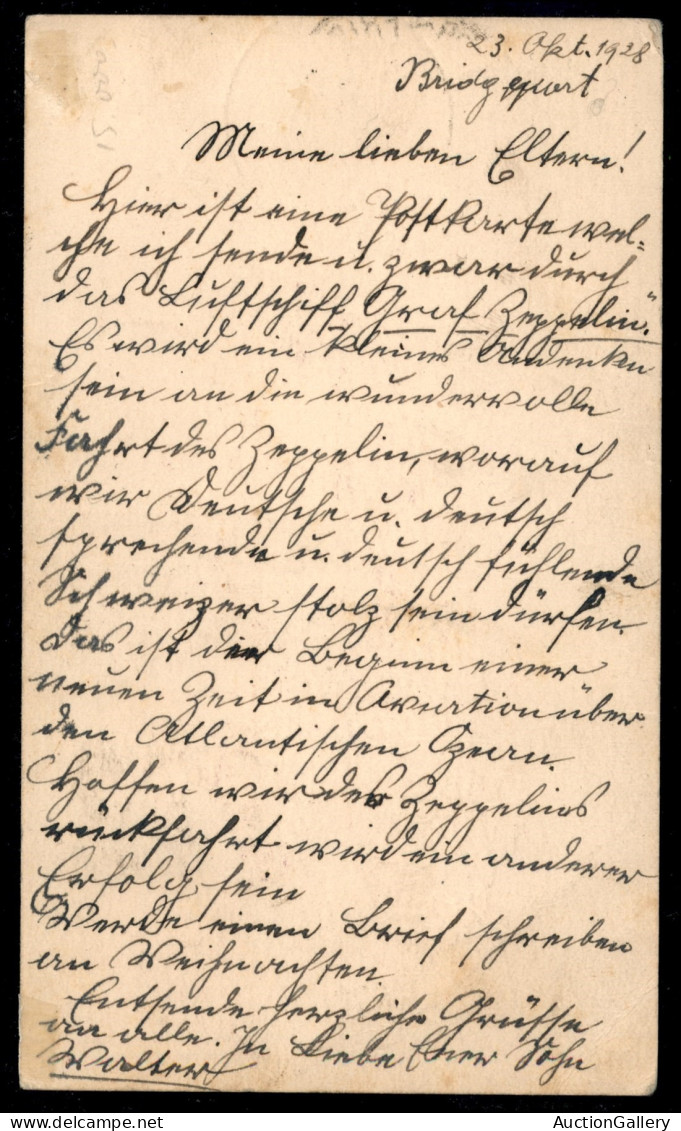 23. Okt. 1928
Bridgeport
Meine lieben Eltern!
Hier ist eine Postkarte wel=
che ich sende u. zwar durch
das Luftschiff Graf Zeppelin".
Es wird ein kleines Andenken
sein an die wundervolle
Fahrt des Zeppelin, worauf
wir Deutsche u. deutsch
sprechende u. deutsch fühlende
Schweizer stolz sein dürfen.
Das ist der Beginn einer
neuen Zeit in Aviation über
den Atlantischen Ozean.
Hoffen wir des Zeppelins
rückfahrt wird ein anderer
Erfolg sein
Werde einen Brief schreiben
an Weihnachten.
Entsende herzliche Grüsse
an alle. In Liebe Euer Sohn
Walter
AuctionGallery